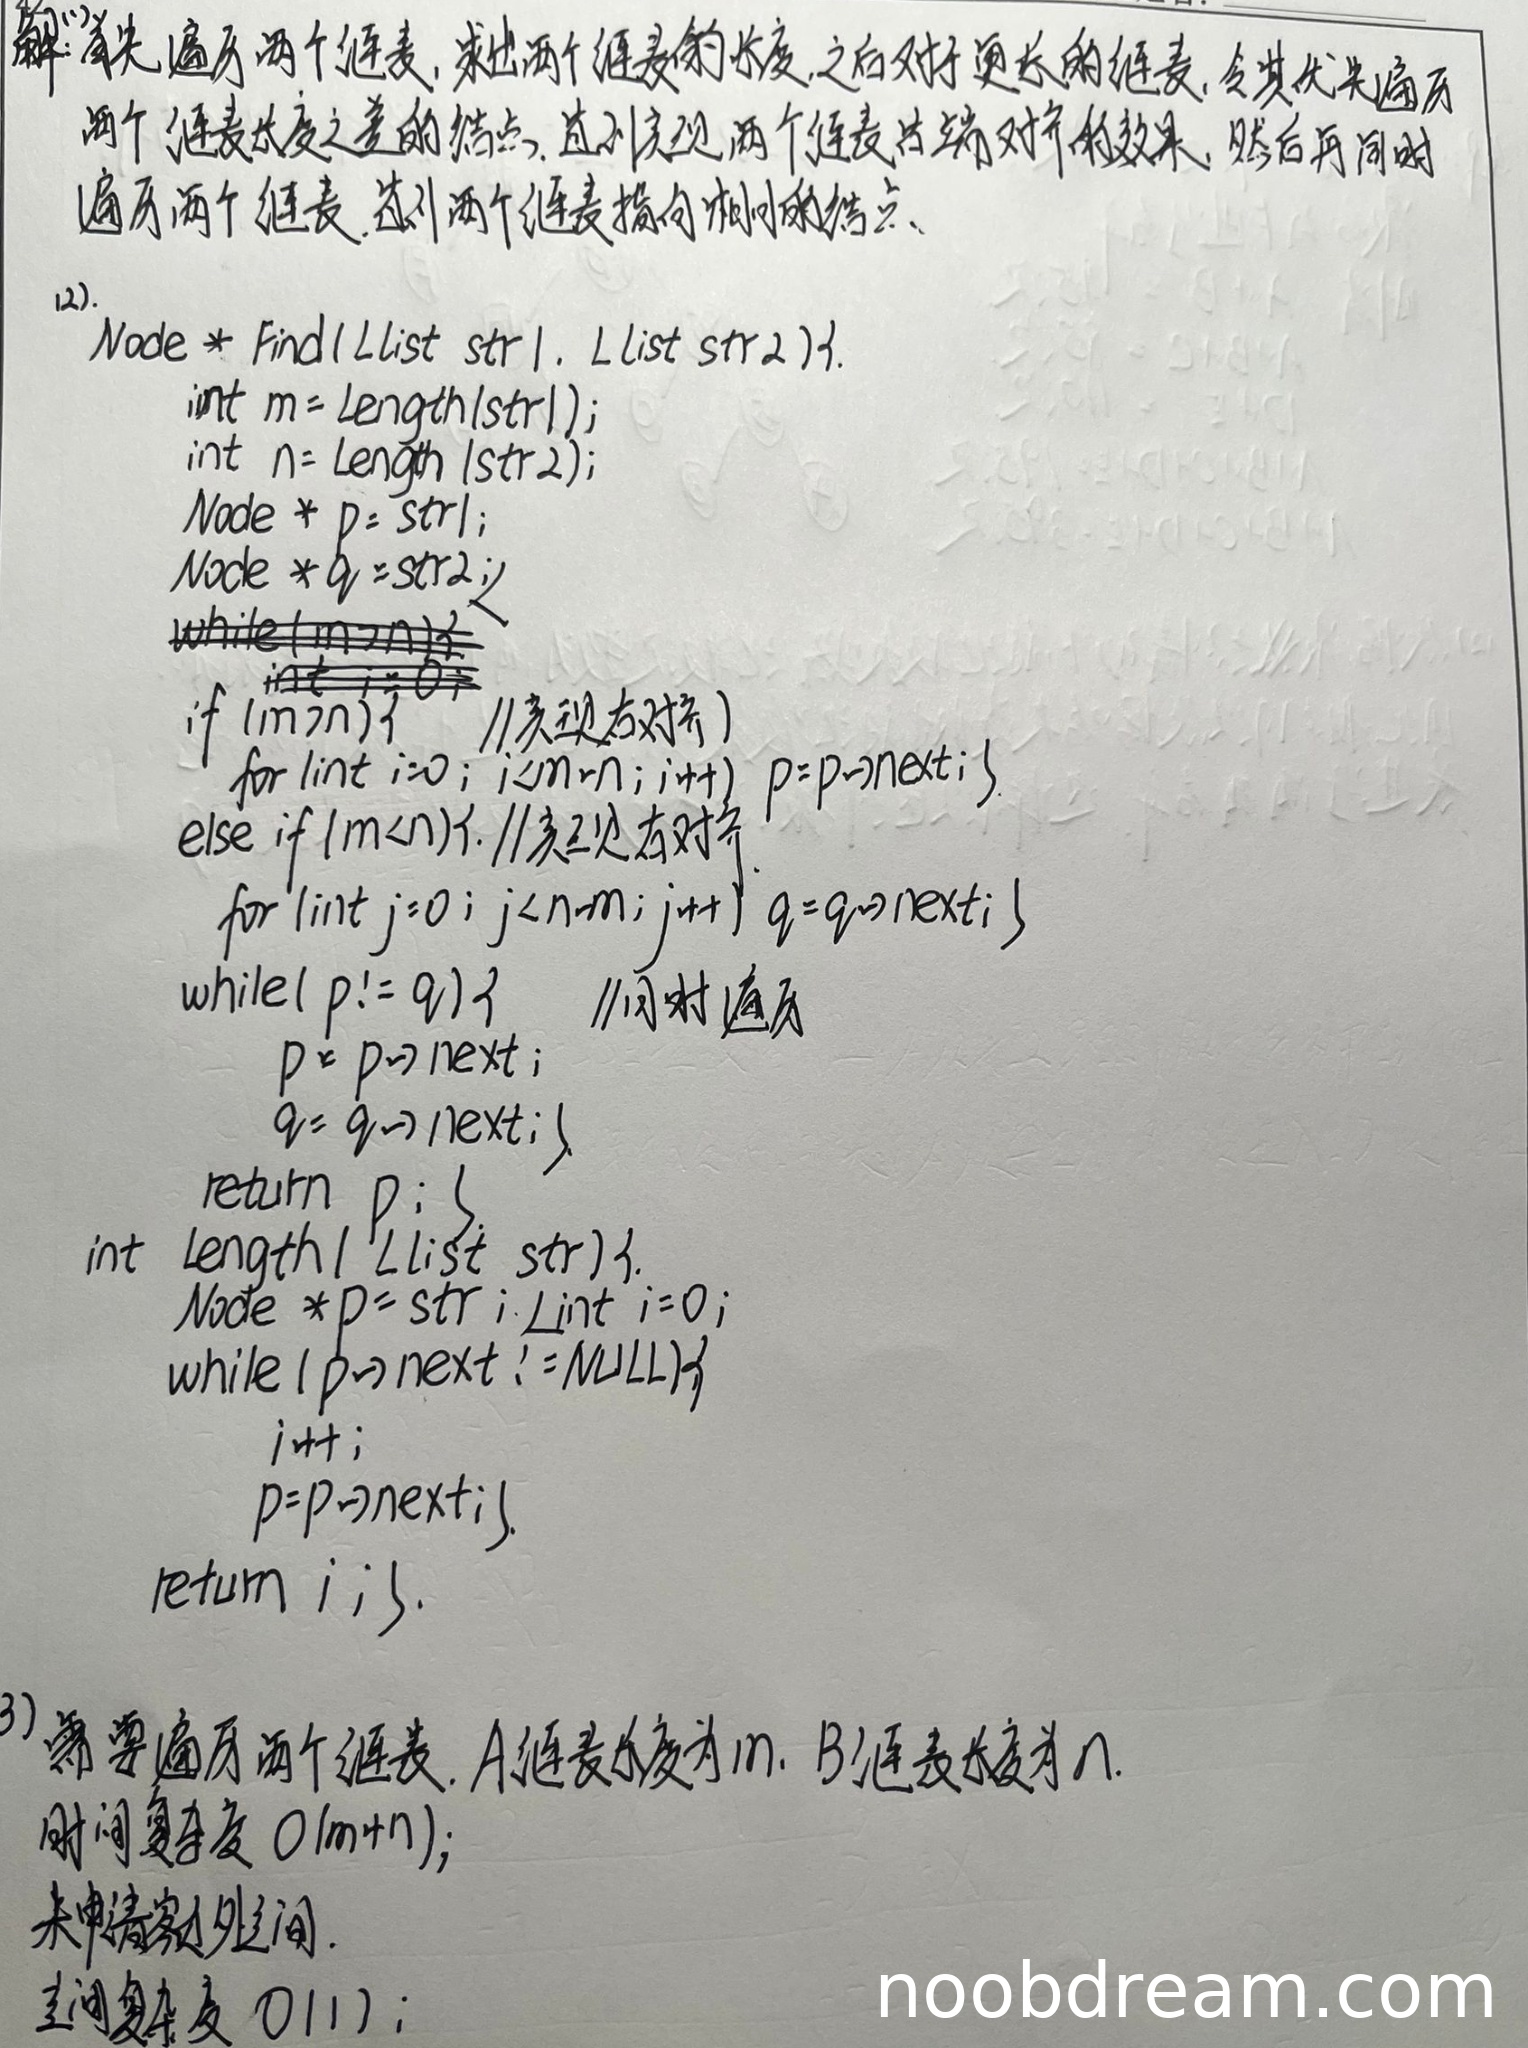 解:(1)首先遍历两个链表,求出两个链表的长度,之后对于更长的链表,令其优先遍历
两个链表长度之差的结点,达到实现两个链表右端对齐的效果,然后再同时
遍历两个链表,达到两个链表指向相同的结点、
(2).
Node * Find(Llist str1, Llist str2){
int m = Length(str1);
int n = Length(str2);
Node * p = str1;
Node * q = str2;
while(m>n){
int i = 0;
if (m>n){ //实现右对齐)
for(int i=0; i<m-n; i++) p=p->next;}
else if(m<n){ //实现右对齐
for(int j=0; j<n-m; j++) q=q->next;}
while(p!=q){ //同时遍历
p = p->next;
q = q->next;}
return p;}
int Length(Llist str){
Node *p = str; int i=0;
while(p->next!=NULL){
i++;
p=p->next;}
return i;}.
3) 需要遍历两个链表.A链表长度为m.B链表长度为n.
时间复杂度 O(m+n);
未申请额外空间.
空间复杂度 O(1);
noobdream.com